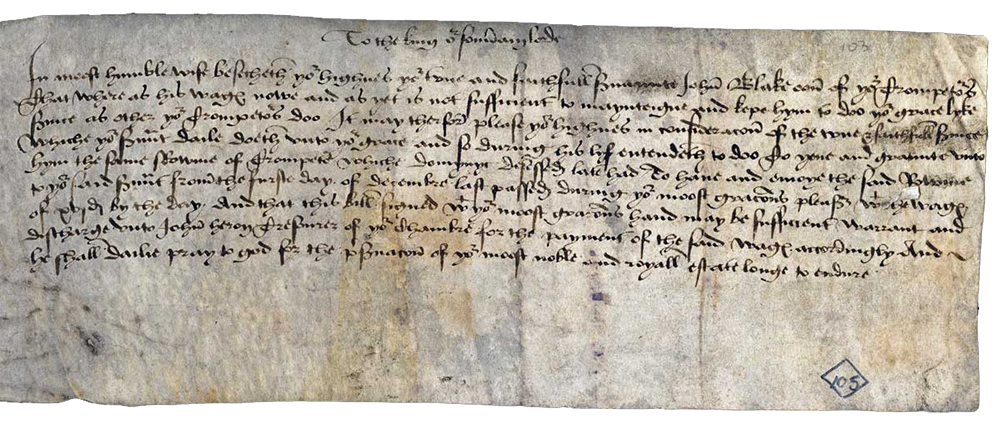 To the king oʳ souᵃain lorde
103
In moost humble wise besecheth yoʳ highnes yoʳ true and faithfull sʳuaunte John Blake oon of yoʳ Trompetᵗs
That where as his wagℯ nowe and as yet is not sufficient to maynteigne and kepe hym to doo yoʳ grace lyke
sʳuice as other yoʳ Trompetᵗs doo It may therfor please yoʳ highnes in consideracon of the true & faithfull sʳuice
whiche yoʳ sʳuᵃnt dailie doeth vnto yoʳ grace and so during his lyf entendeth to doo To yeue and graunte vnto
hym the same Rowme of Trompetᵗ whiche domynyc decessed late had To haue and enioye the said Rowme
to yoʳ said sʳuᵃnt from the furste day of decembre last passed during yoʳ moost gracious pleasʳ wᵗ the wagℯ
of xvjd by the day And that this bill signed wᵗ yoʳ moost gracious hand may be sufficient warrant and
discharge vnto John heron Tresourer of yoʳ chambre for the payment of the said wagℯ accordingly And
he shall dailie pray to god for the pʳsʳuacon of yoʳ moost noble and royall estate longe to endure
105